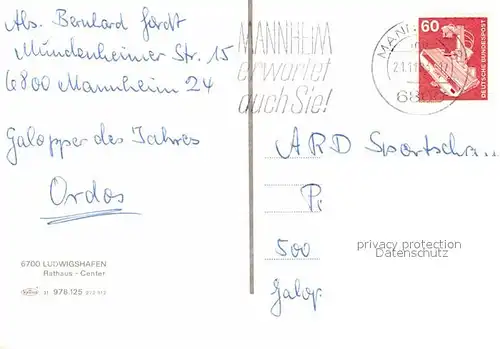 Abs. Bernhard Jordt
Mundenheimer Str. 15
6800 Mannheim 24
Galopper des Jahres
Ordos
6700 LUDWIGSHAFEN
Rathaus - Center
21 978.125
MANNHEIM
erwartet
auch Sie!
60
DEUTSCHE BUNDESPOST
ARD Sportscha
P
500
Galop
privacy protection
Datenschutz